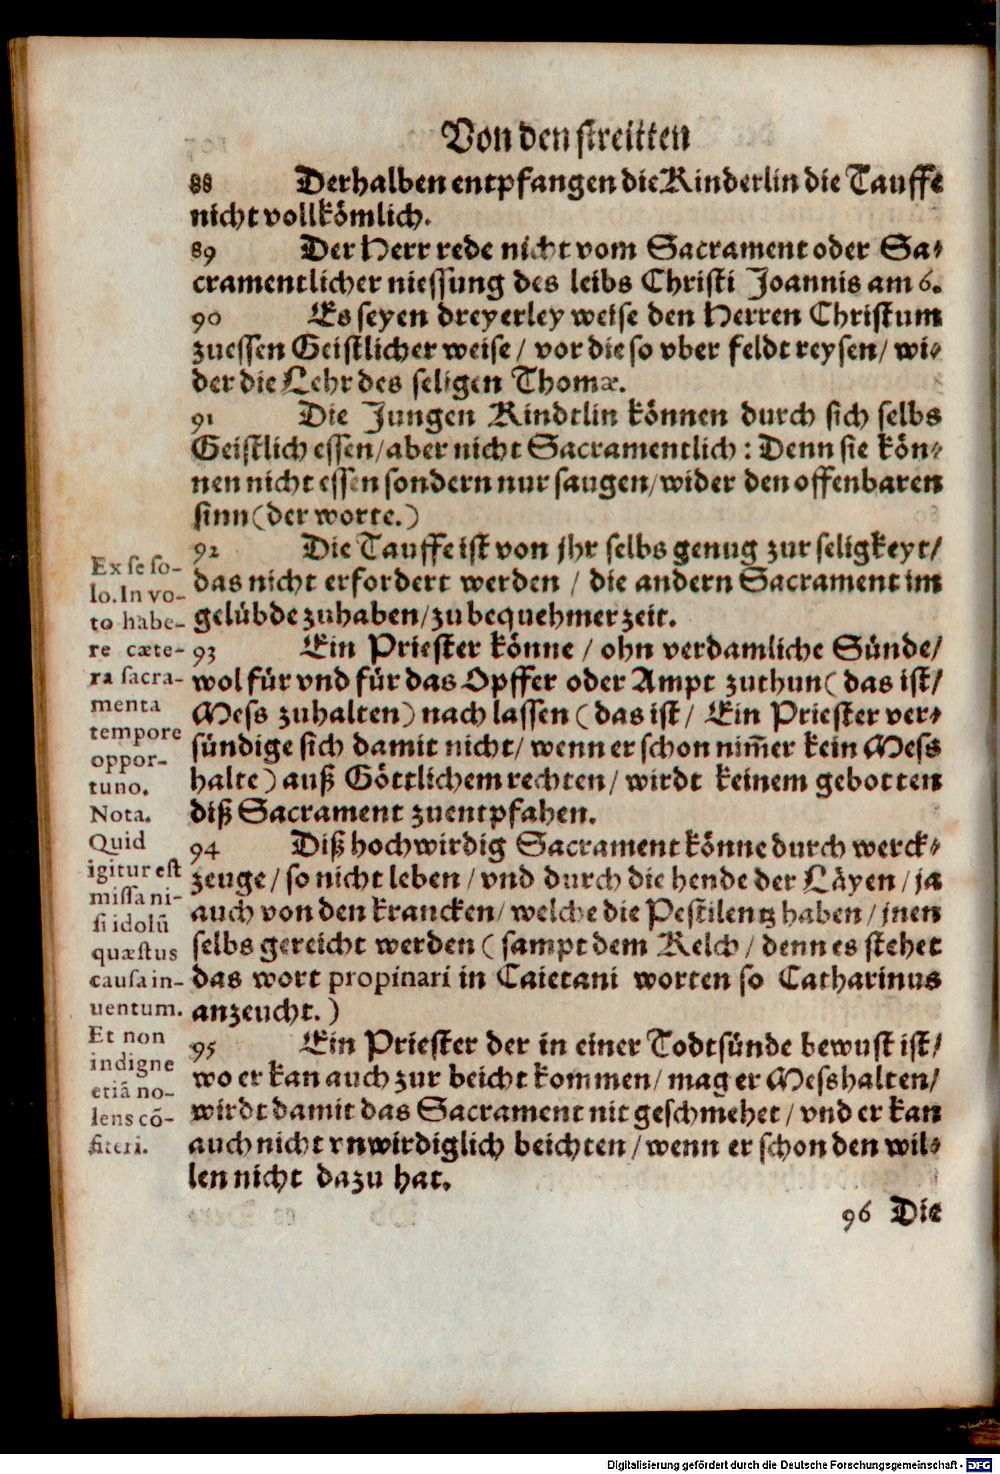 Von den streitten
88 Derhalben entpfangen die Kinderlin die Tauffe
nicht vollkömlich.
89 Der Herr rede nicht vom Sacrament oder Sa-
cramentlicher niessung des leibs Christi Joannis am 6.
90 Es seyen dreyerley weise den Herren Christum
zuessen Geistlicher weise / vor die so vber feldt reysen / wi-
der die Lehr des seligen Thomæ.
91 Die Jungen Kindtlin können durch sich selbs
Geistlich essen / aber nicht Sacramentlich : Denn sie kön-
nen nicht essen sondern nur saugen / wider den offenbaren
sinn (der worte.)
92 Die Tauffe ist von jhr selbs genug zur seligkeyt /
das nicht erfordert werden / die andern Sacrament im
gelübde zuhaben / zu bequehmer zeit.
93 Ein Priester könne / ohn verdamliche Sünde /
wol für vnd für das Opffer oder Ampt zuthun (das ist /
Mess zuhalten) nach lassen (das ist / Ein Priester ver-
sündige sich damit nicht / wenn er schon nim̄er kein Mess
halte) auß Göttlichem rechten / wirdt keinem gebotten
diß Sacrament zuentpfahen.
94 Diß hochwirdig Sacrament könne durch werck-
zeuge / so nicht leben / vnd durch die hende der Läyen / ja
auch von den krancken / welche die Pestilentz haben / jnen
selbs gereicht werden (sampt dem Kelch / denn es stehet
das wort propinari in Caietani worten so Catharinus
anzeucht.)
95 Ein Priester der in einer Todtsünde bewust ist /
wo er kan auch zur beicht kommen / mag er Mess halten /
wirdt damit das Sacrament nit geschmehet / vnd er kan
auch nicht vnwirdiglich beichten / wenn er schon den wil-
len nicht dazu hat.
96 Die
Ex se so-
lo. In vo-
to habe-
re cæte-
ra sacra-
menta
tempore
oppor-
tuno.
Nota.
Quid
igitur est
missa ni-
si idolū
quæstus
causa in-
uentum.
Et non
indigne
etiā no-
lens cō-
fiteri.
Digitalisierung gefördert durch die Deutsche Forschungsgemeinschaft - DFG